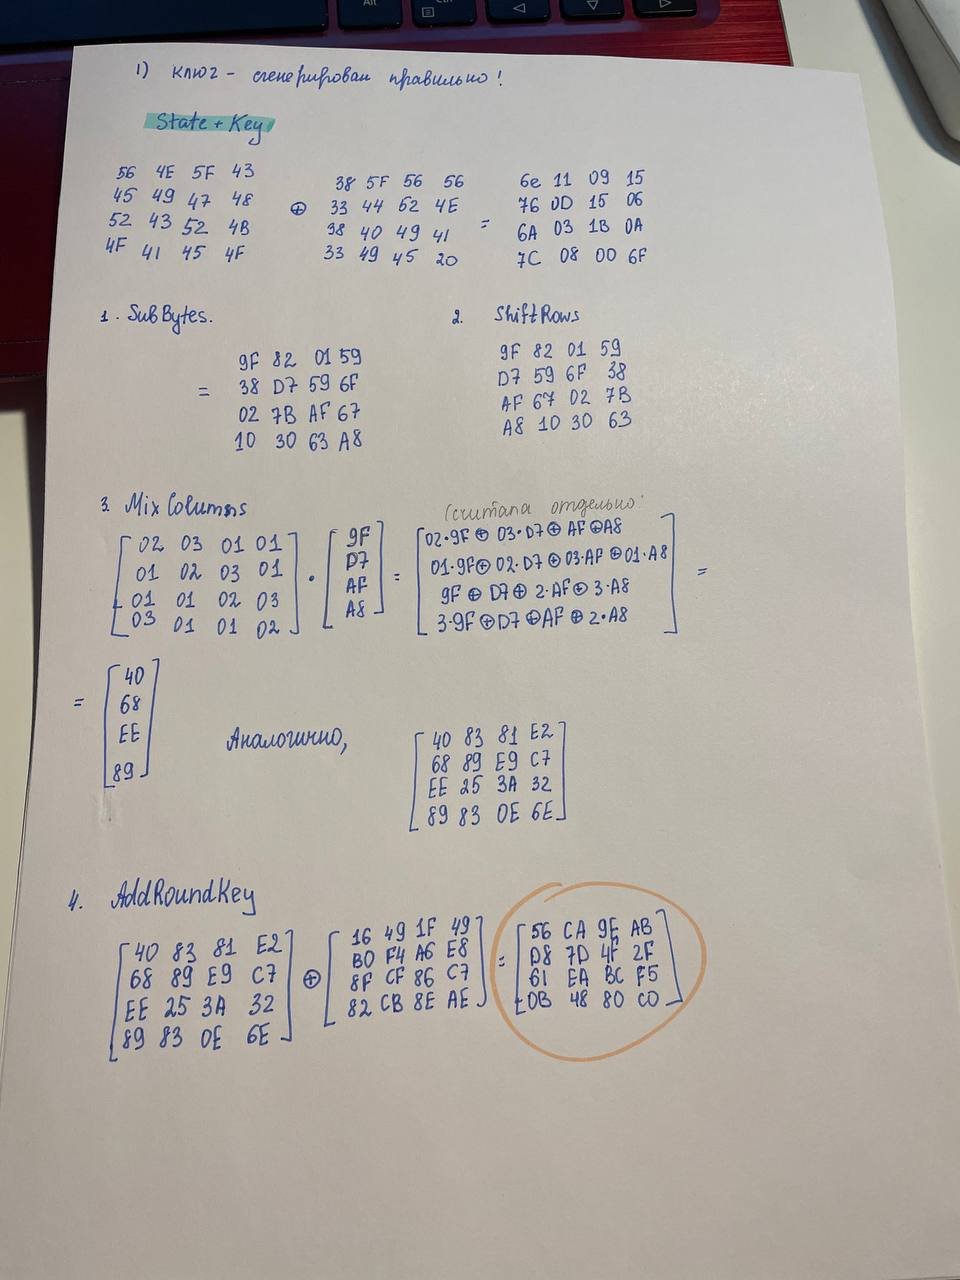 Alt
Ctrl
1) ключ - сгенерирован правильно!
State + Key
56 4E 5F 43
45 49 47 48
52 43 52 4B
4F 41 45 4F
⊕
38 5F 56 56
33 44 62 4E
38 40 49 41
33 49 45 20
=
6e 11 09 15
76 0D 15 06
6A 03 1B 0A
7C 08 00 6F
1. SubBytes.
=
9F 82 01 59
38 D7 59 6F
02 7B AF 67
10 30 63 A8
2. ShiftRows
9F 82 01 59
D7 59 6F 38
AF 67 02 7B
A8 10 30 63
3. MixColumns
(считала отдельно
02 03 01 01
01 02 03 01
01 01 02 03
03 01 01 02
·
9F
D7
AF
A8
=
02·9F ⊕ 03·D7 ⊕ AF ⊕ A8
01·9F ⊕ 02·D7 ⊕ 03·AF ⊕ 01·A8
9F ⊕ D7 ⊕ 2·AF ⊕ 3·A8
3·9F ⊕ D7 ⊕ AF ⊕ 2·A8
=
=
40
68
EE
89
Аналогично,
40 83 81 E2
68 89 E9 C7
EE 25 3A 32
89 83 0E 6E
4. AddRoundKey
40 83 81 E2
68 89 E9 C7
EE 25 3A 32
89 83 0E 6E
⊕
16 49 1F 49
B0 F4 A6 E8
8F CF 86 C7
82 CB 8E AE
=
56 CA 9E AB
D8 7D 4F 2F
61 EA BC F5
0B 48 80 C0